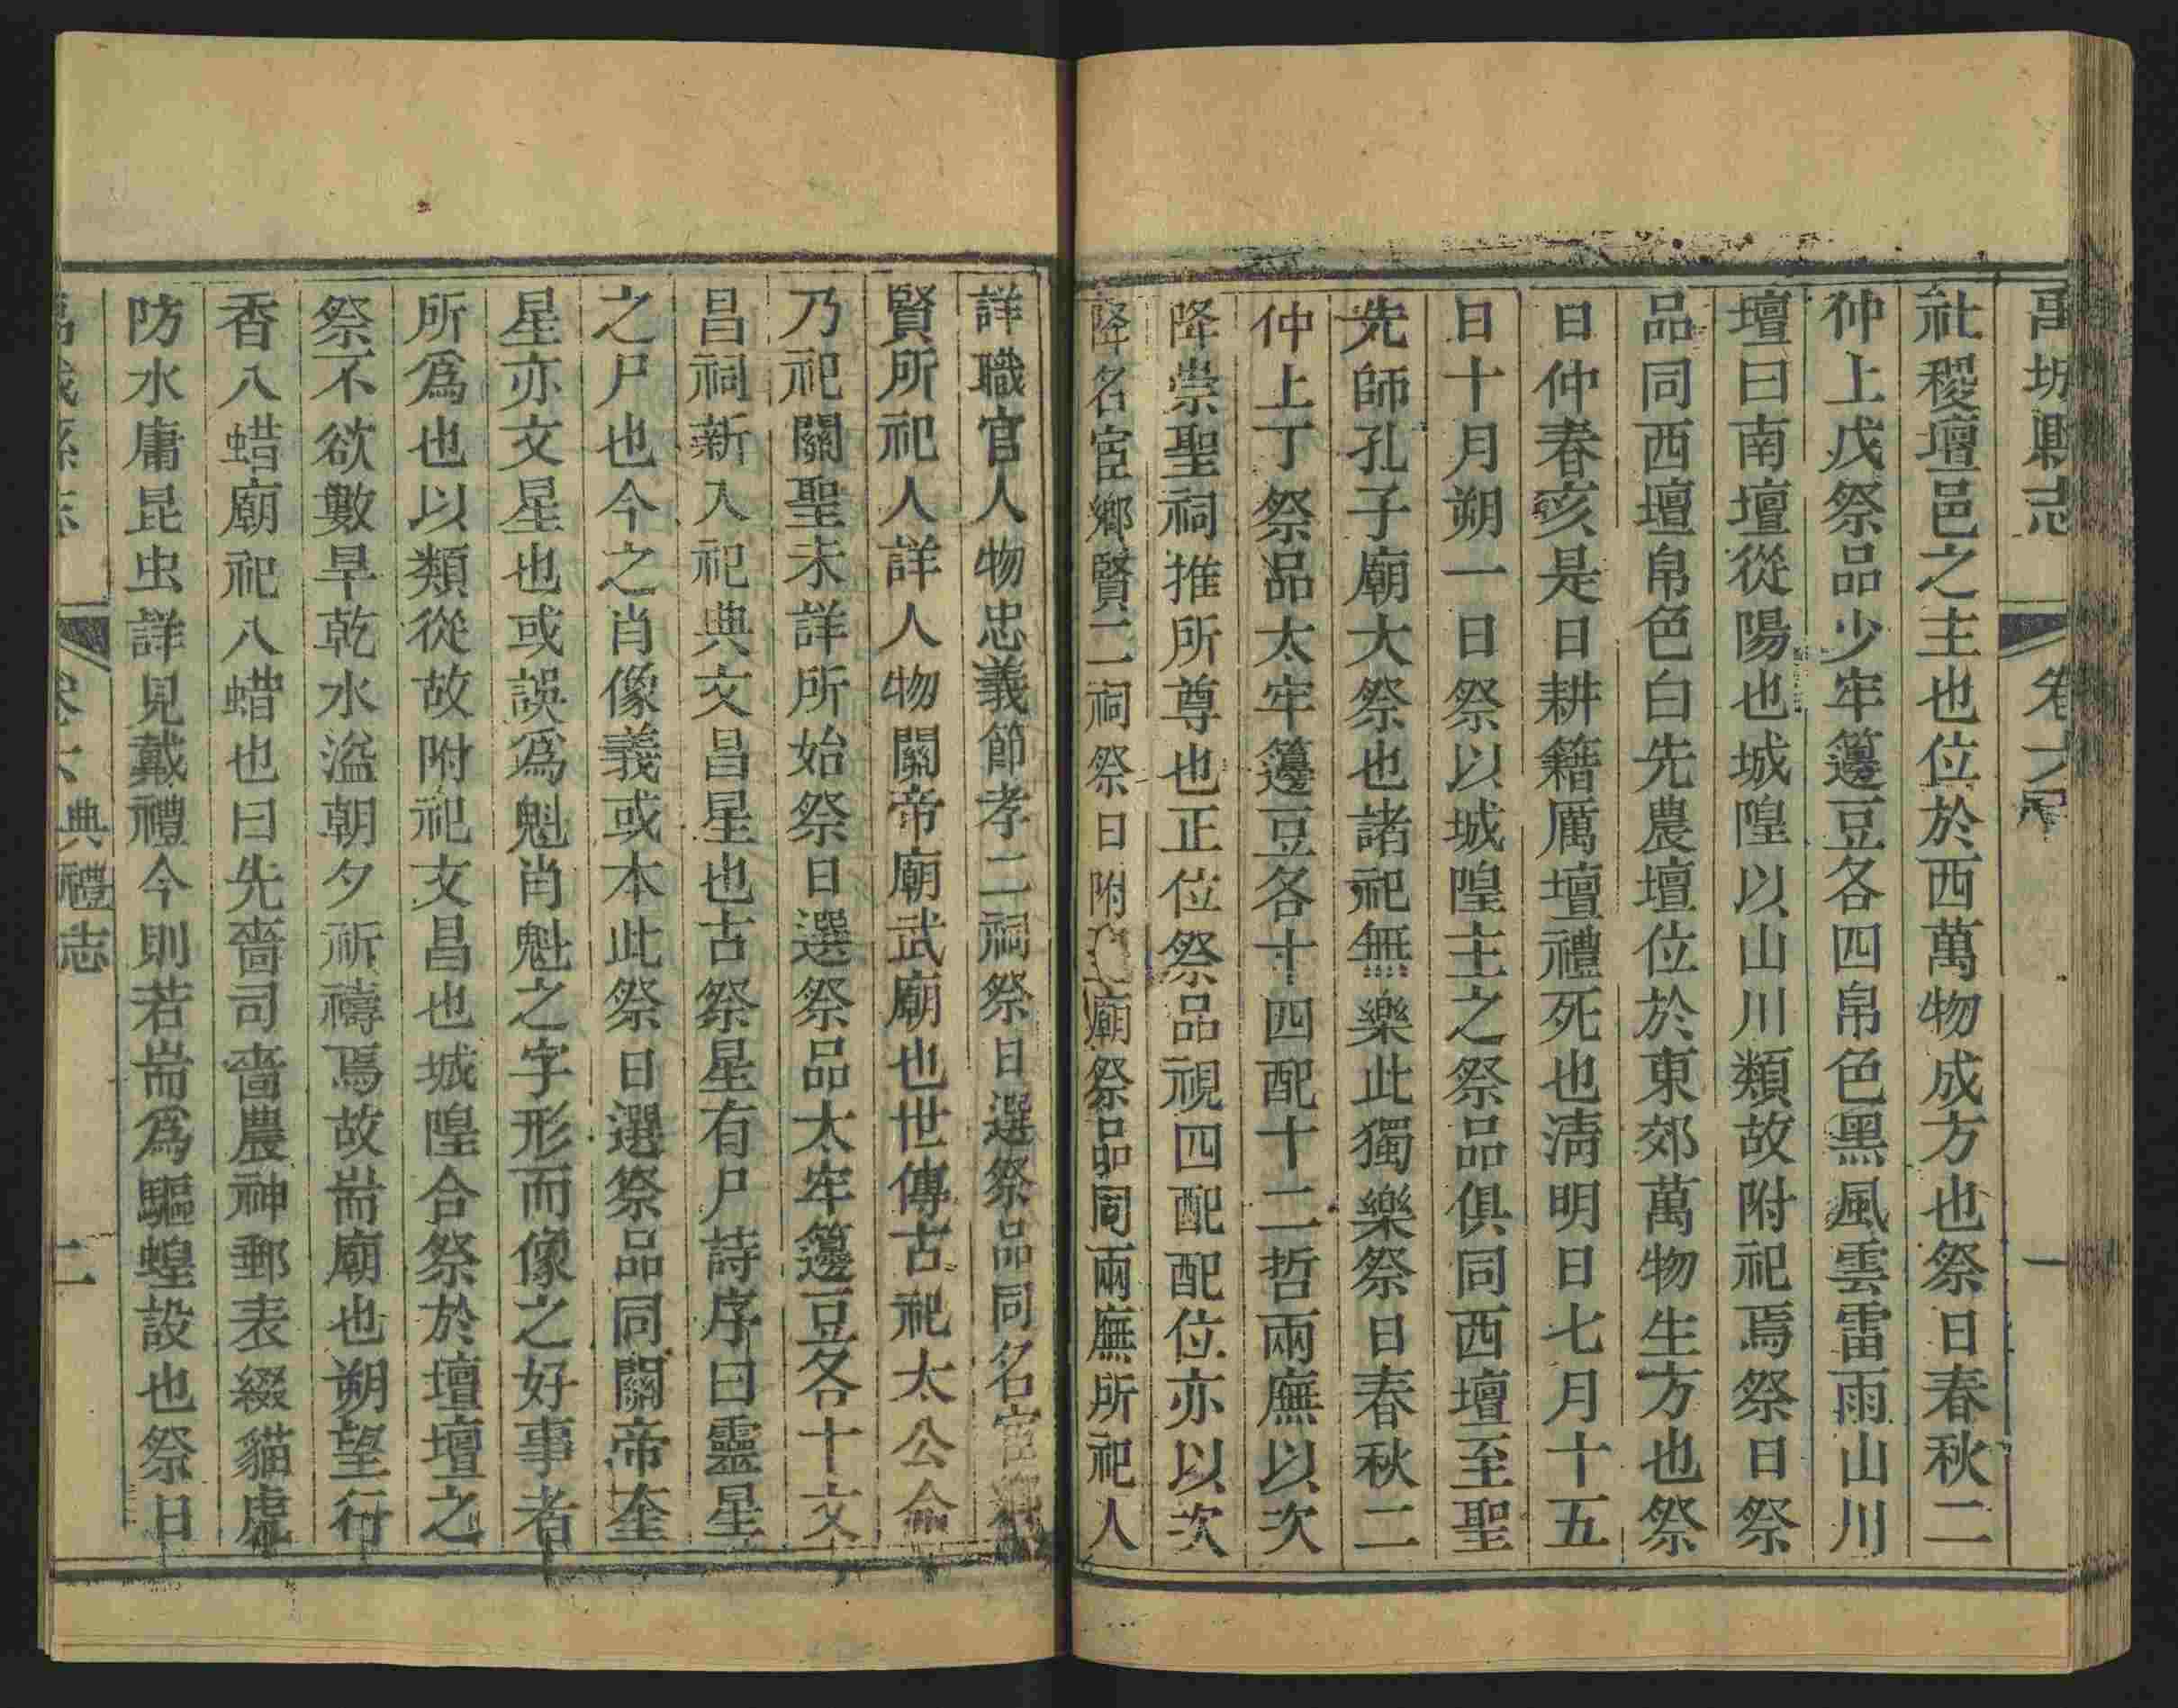 禹城縣志 卷六 一
社稷壇邑之主也位於西萬物成方也祭日春秋二
仲上戊祭品少牢籩豆各四帛色黑風雲雷雨山川
壇曰南壇從陽也城隍以山川類故附祀焉祭日祭
品同西壇帛色白先農壇位於東郊萬物生方也祭
日仲春亥是日耕籍厲壇禮死也淸明日七月十五
日十月朔一日祭以城隍主之祭品俱同西壇至聖
先師孔子廟大祭也諸祀無樂此獨樂祭日春秋二
仲上丁祭品太牢籩豆各十四配十二哲兩廡以次
降崇聖祠推所尊也正位祭品視四配配位亦以次
降名宦鄉賢二祠祭日附廟祭品同兩廡所祀人
詳職官人物忠義節孝二祠祭日選祭品同名宦鄉
賢所祀人詳人物關帝廟武廟也世傳古祀太公今
乃祀關聖未詳所始祭日選祭品太牢籩豆各十文
昌祠新入祀典文昌星也古祭星有尸詩序曰靈星
之尸也今之肖像義或本此祭日選祭品同關帝奎
星亦文星也或誤爲魁肖魁之字形而像之好事者
所爲也以類從故附祀文昌也城隍合祭於壇壇之
祭不欲數旱乾水溢朝夕祈禱焉故耑廟也朔望行
香八蜡廟祀八蜡也曰先嗇司嗇農神郵表綴貓虎
防水庸昆虫詳見戴禮今則若耑爲驅蝗設也祭日
禹城縣志 卷六 典禮志 二